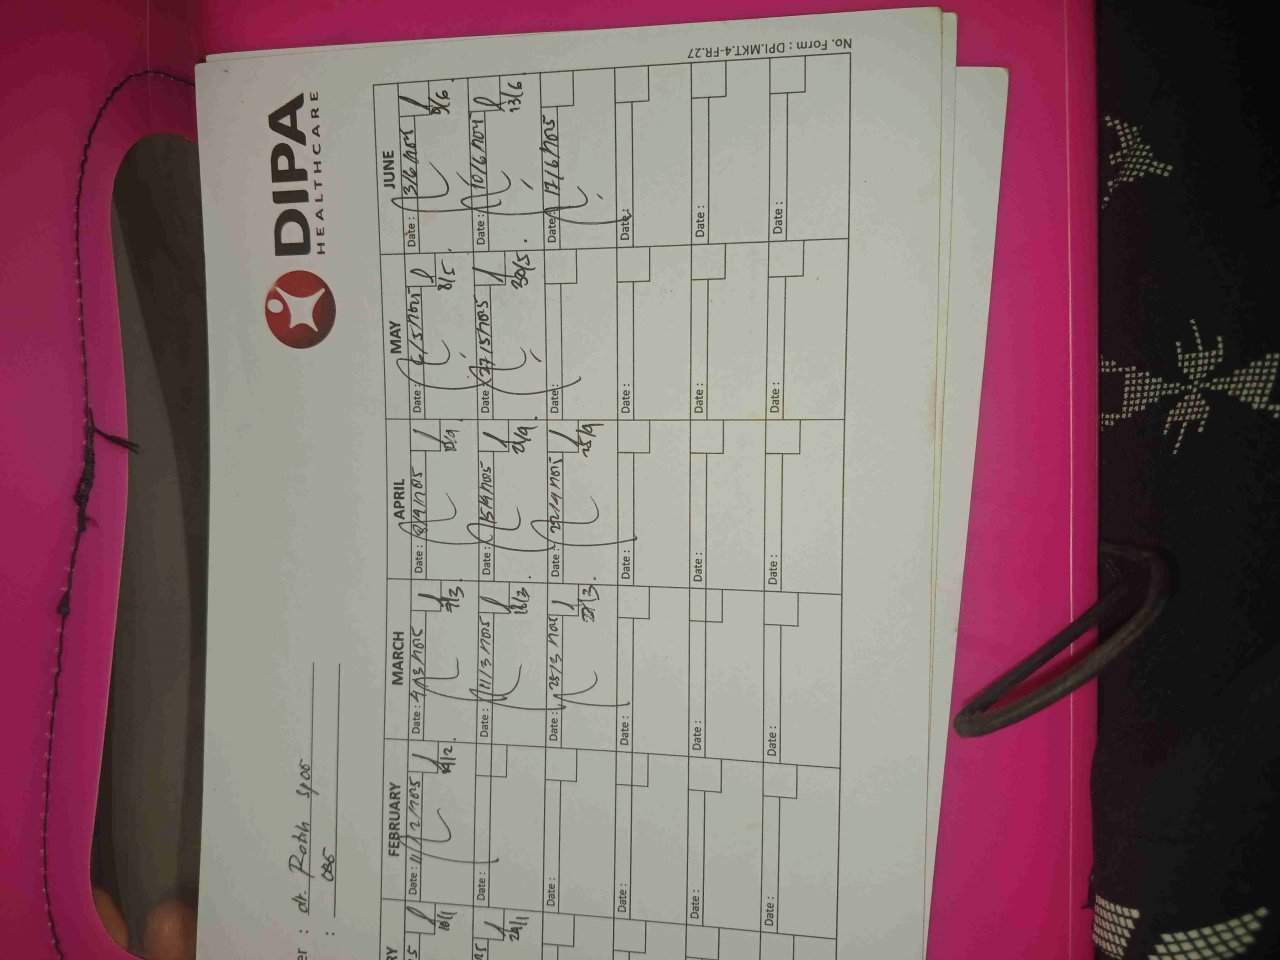 DIPA
HEALTHCARE
er : dr. Ratih SpOG
:
RY FEBRUARY MARCH APRIL MAY JUNE
5 Date : 11/2/2025 Date : 4/3/2025 Date : 8/4/2025 Date : 6/5/2025 Date : 3/6/2025
10/1 14/2 7/3 8/5 5/6
25 Date : Date : 11/3/2025 Date : 15/4/2025 Date : 27/5/2025 Date : 10/6/2025
24/1 30/5 13/6
Date : Date : 25/3/2025 Date : 22/4/2025 Date : Date : 17/6/2025
25/4
Date : Date : Date : Date : Date :
Date : Date : Date : Date : Date :
Date : Date : Date : Date : Date :
No. Form : DPI.MKT.4-FR.27